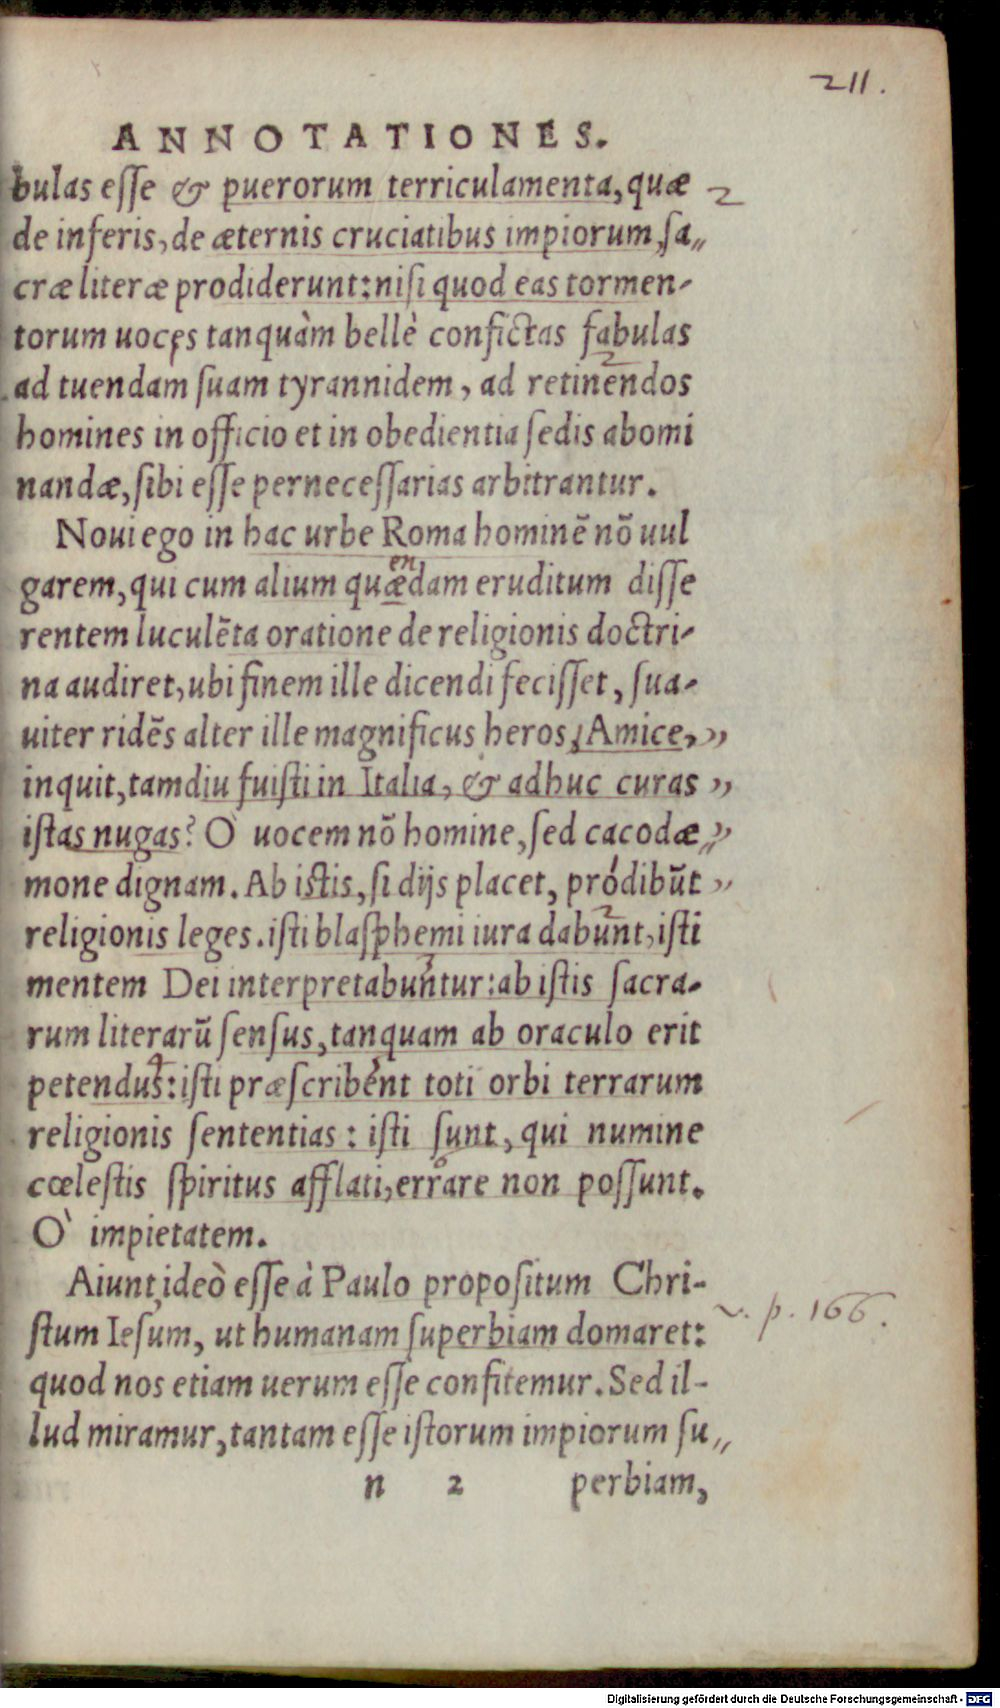 211.
ANNOTATIONES.
bulas esse & puerorum terriculamenta, quæ 2
de inferis, de æternis cruciatibus impiorum, sa„
cræ literæ prodiderunt: nisi quod eas tormen-
torum uoces tanquàm bellè confictas fabulas
ad tuendam suam tyrannidem, ad retinendos
homines in officio et in obedientia sedis abomi
nandæ, sibi esse pernecessarias arbitrantur.
Noui ego in hac urbe Roma hominē nō uul
garem, qui cum alium quædam eruditum disse
rentem luculēta oratione de religionis doctri-
na audiret, ubi finem ille dicendi fecisset, sua-
uiter ridēs alter ille magnificus heros, Amice, „
inquit, tamdiu fuisti in Italia, & adhuc curas „
istas nugas? Ò uocem nō homine, sed cacodæ„
mone dignam. Ab istis, si dijs placet, prodibūt „
religionis leges. isti blasphemi iura dabunt, isti
mentem Dei interpretabuntur: ab istis sacra-
rum literarū sensus, tanquam ab oraculo erit
petendus: isti præscribent toti orbi terrarum
religionis sententias: isti sunt, qui numine
cœlestis spiritus afflati, errare non possunt.
Ò impietatem.
Aiunt, ideò esse à Paulo propositum Chri-
stum Iesum, ut humanam superbiam domaret: v. p. 166.
quod nos etiam uerum esse confitemur. Sed il-
lud miramur, tantam esse istorum impiorum su„
n 2 perbiam,
Digitalisierung gefördert durch die Deutsche Forschungsgemeinschaft - DFG